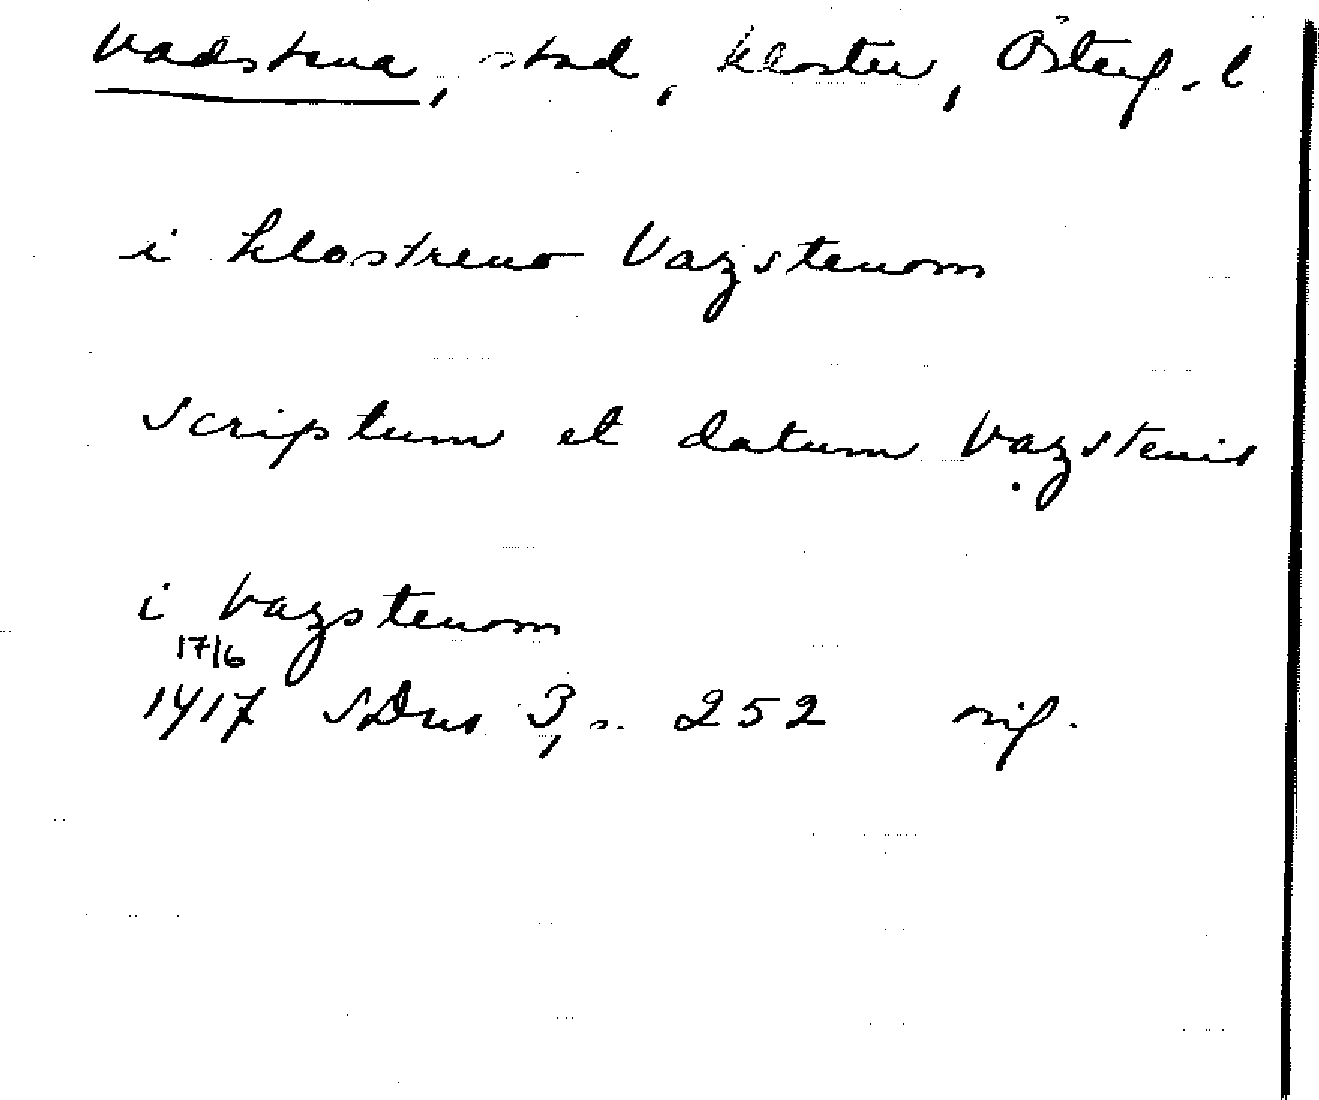 Vadstena, stad, kloster, Österg. l
i klostreno Vazstenom
scriptum et datum Vazstenis
i Vazstenom
17/6
1417 SDns 3, s. 252 orig.